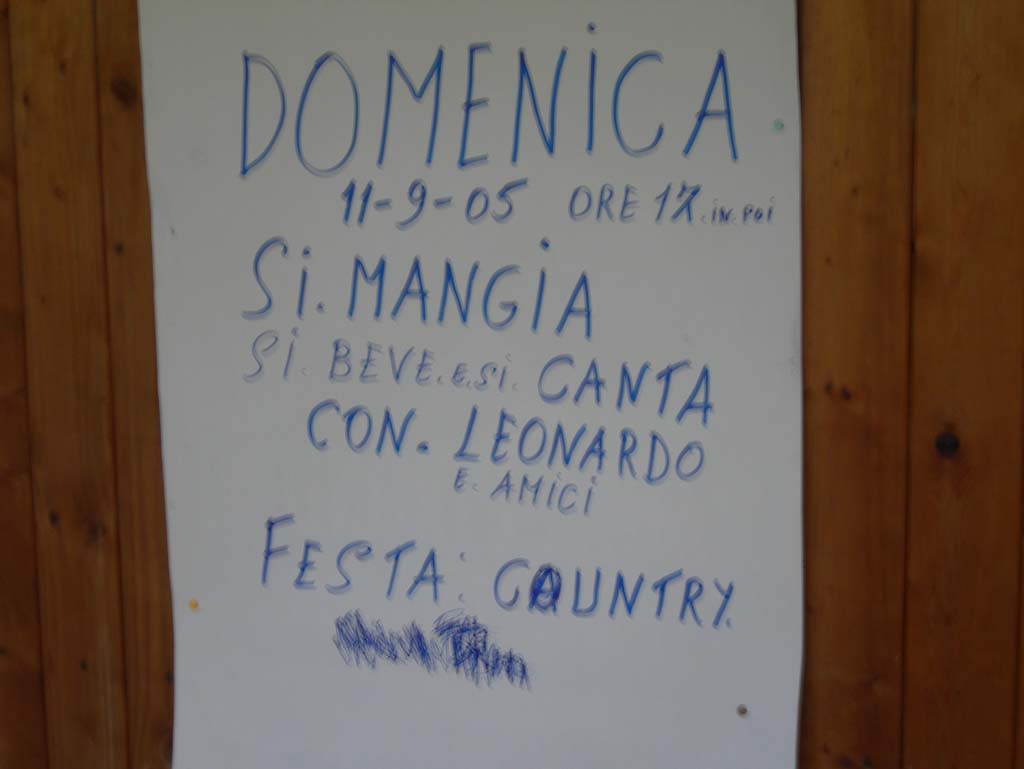 DOMENiCA
11-9-05 ORE 17.iN.POi
Si. MANGiA
Si. BEVE.E.Si. CANTA
CON. LEONARDO
E. AMiCi
FESTA: COUNTRY.